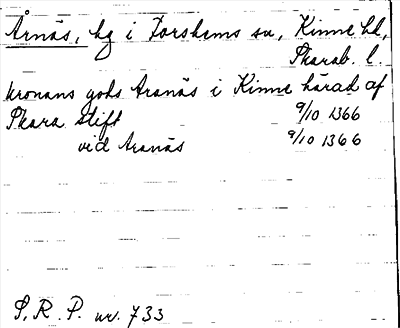 Årnäs, hg i Forshems sn, Kinne hd,
Skarab. l.
kronans gods Aranäs i Kinne härad af
Skara stift 9/10 1366
vid Aranäs 9/10 1366
S. R. P. nr. 733